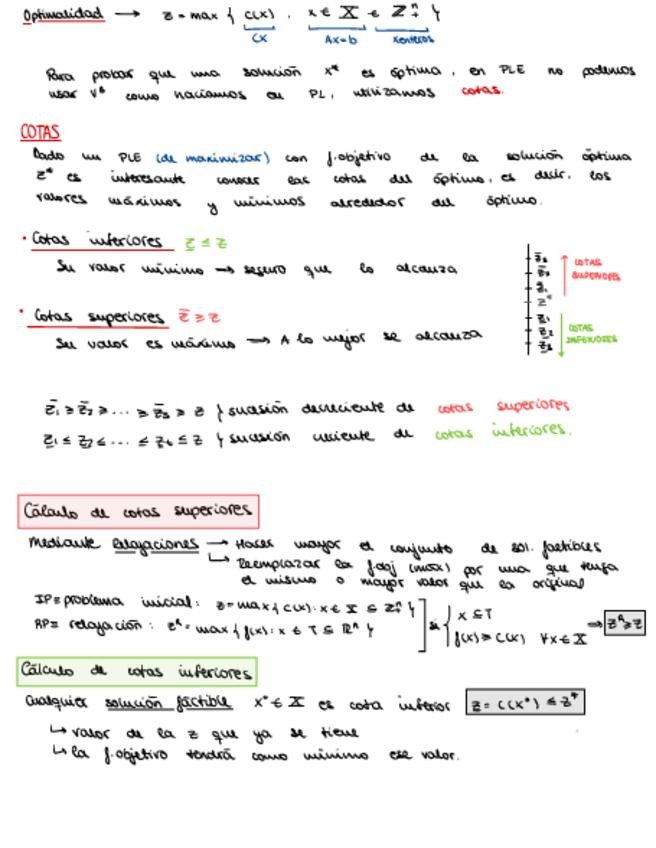 Optimalidad → z = max { c(x) : x ∈ X ⊆ Z₊ⁿ }
cx Ax=b xenteros
Para probar que una solución x* es óptima, en PLE no podemos
usar Vᴮ como hacíamos en PL, utilizamos cotas.
COTAS
Dado un PLE (de maximizar) con f.objetivo de la solución óptima
z* es interesante conocer las cotas del óptimo, es decir, los
valores máximos y mínimos alrededor del óptimo.
· Cotas inferiores z̲ ≤ z
Su valor mínimo → seguro que lo alcanza
· Cotas superiores z̄ ≥ z
Su valor es máximo → A lo mejor se alcanza
COTAS
SUPERIORES
z*
COTAS
INFERIORES
z̄₁ ≥ z̄₂ ≥ ... ≥ z̄s ≥ z } sucesión decreciente de cotas superiores
z̲₁ ≤ z̲₂ ≤ ... ≤ z̲t ≤ z } sucesión creciente de cotas inferiores.
Cálculo de cotas superiores
Mediante relajaciones → Hacer mayor el conjunto de sol. factibles
↳ Reemplazar la f.obj (max) por una que tenga
el mismo o mayor valor que la original
IP ≡ problema inicial: z = max { c(x) : x ∈ X ⊆ Z₊ⁿ }
RP ≡ relajación: zᴿ = max { f(x) : x ∈ T ⊆ Rⁿ }
si { X ⊆ T
f(x) ≥ c(x) ∀x ∈ X ⇒ zᴿ ≥ z
Cálculo de cotas inferiores
Cualquier solución factible x* ∈ X es cota inferior z = c(x*) ≤ z*
↳ valor de la z que ya se tiene
↳ la f.objetivo tendrá como mínimo ese valor.